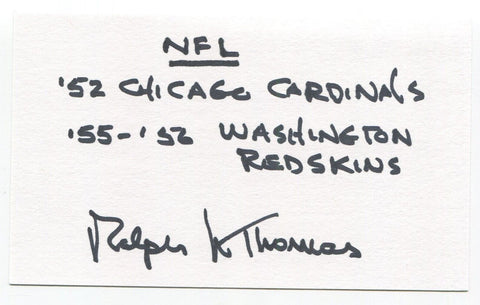 NFL
'52 CHICAGO CARDINALS
'55-'56 WASHINGTON
REDSKINS
Ralph W Thomas